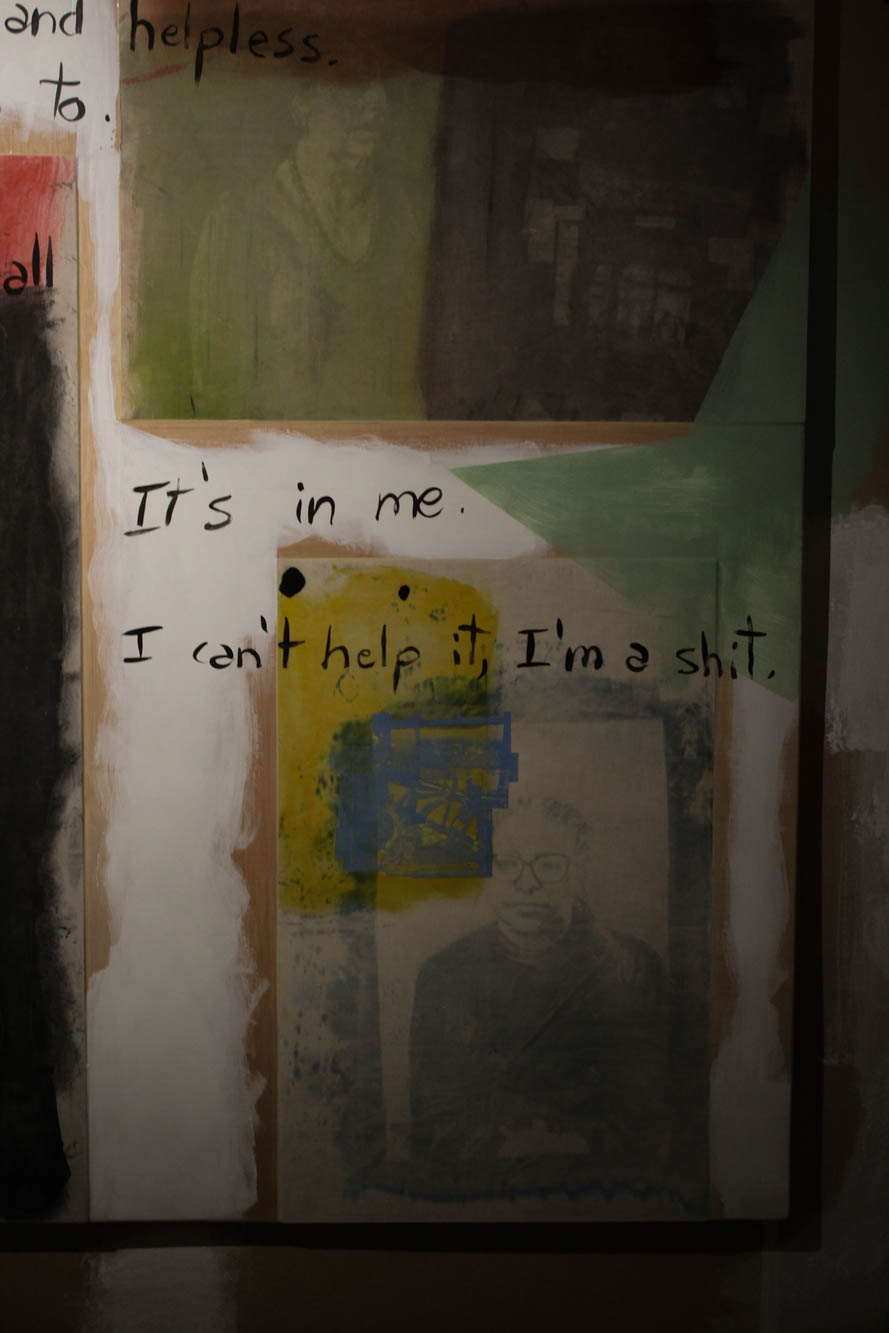 and helpless.
to.
all
It's in me.
I can't help it, I'm a shit.